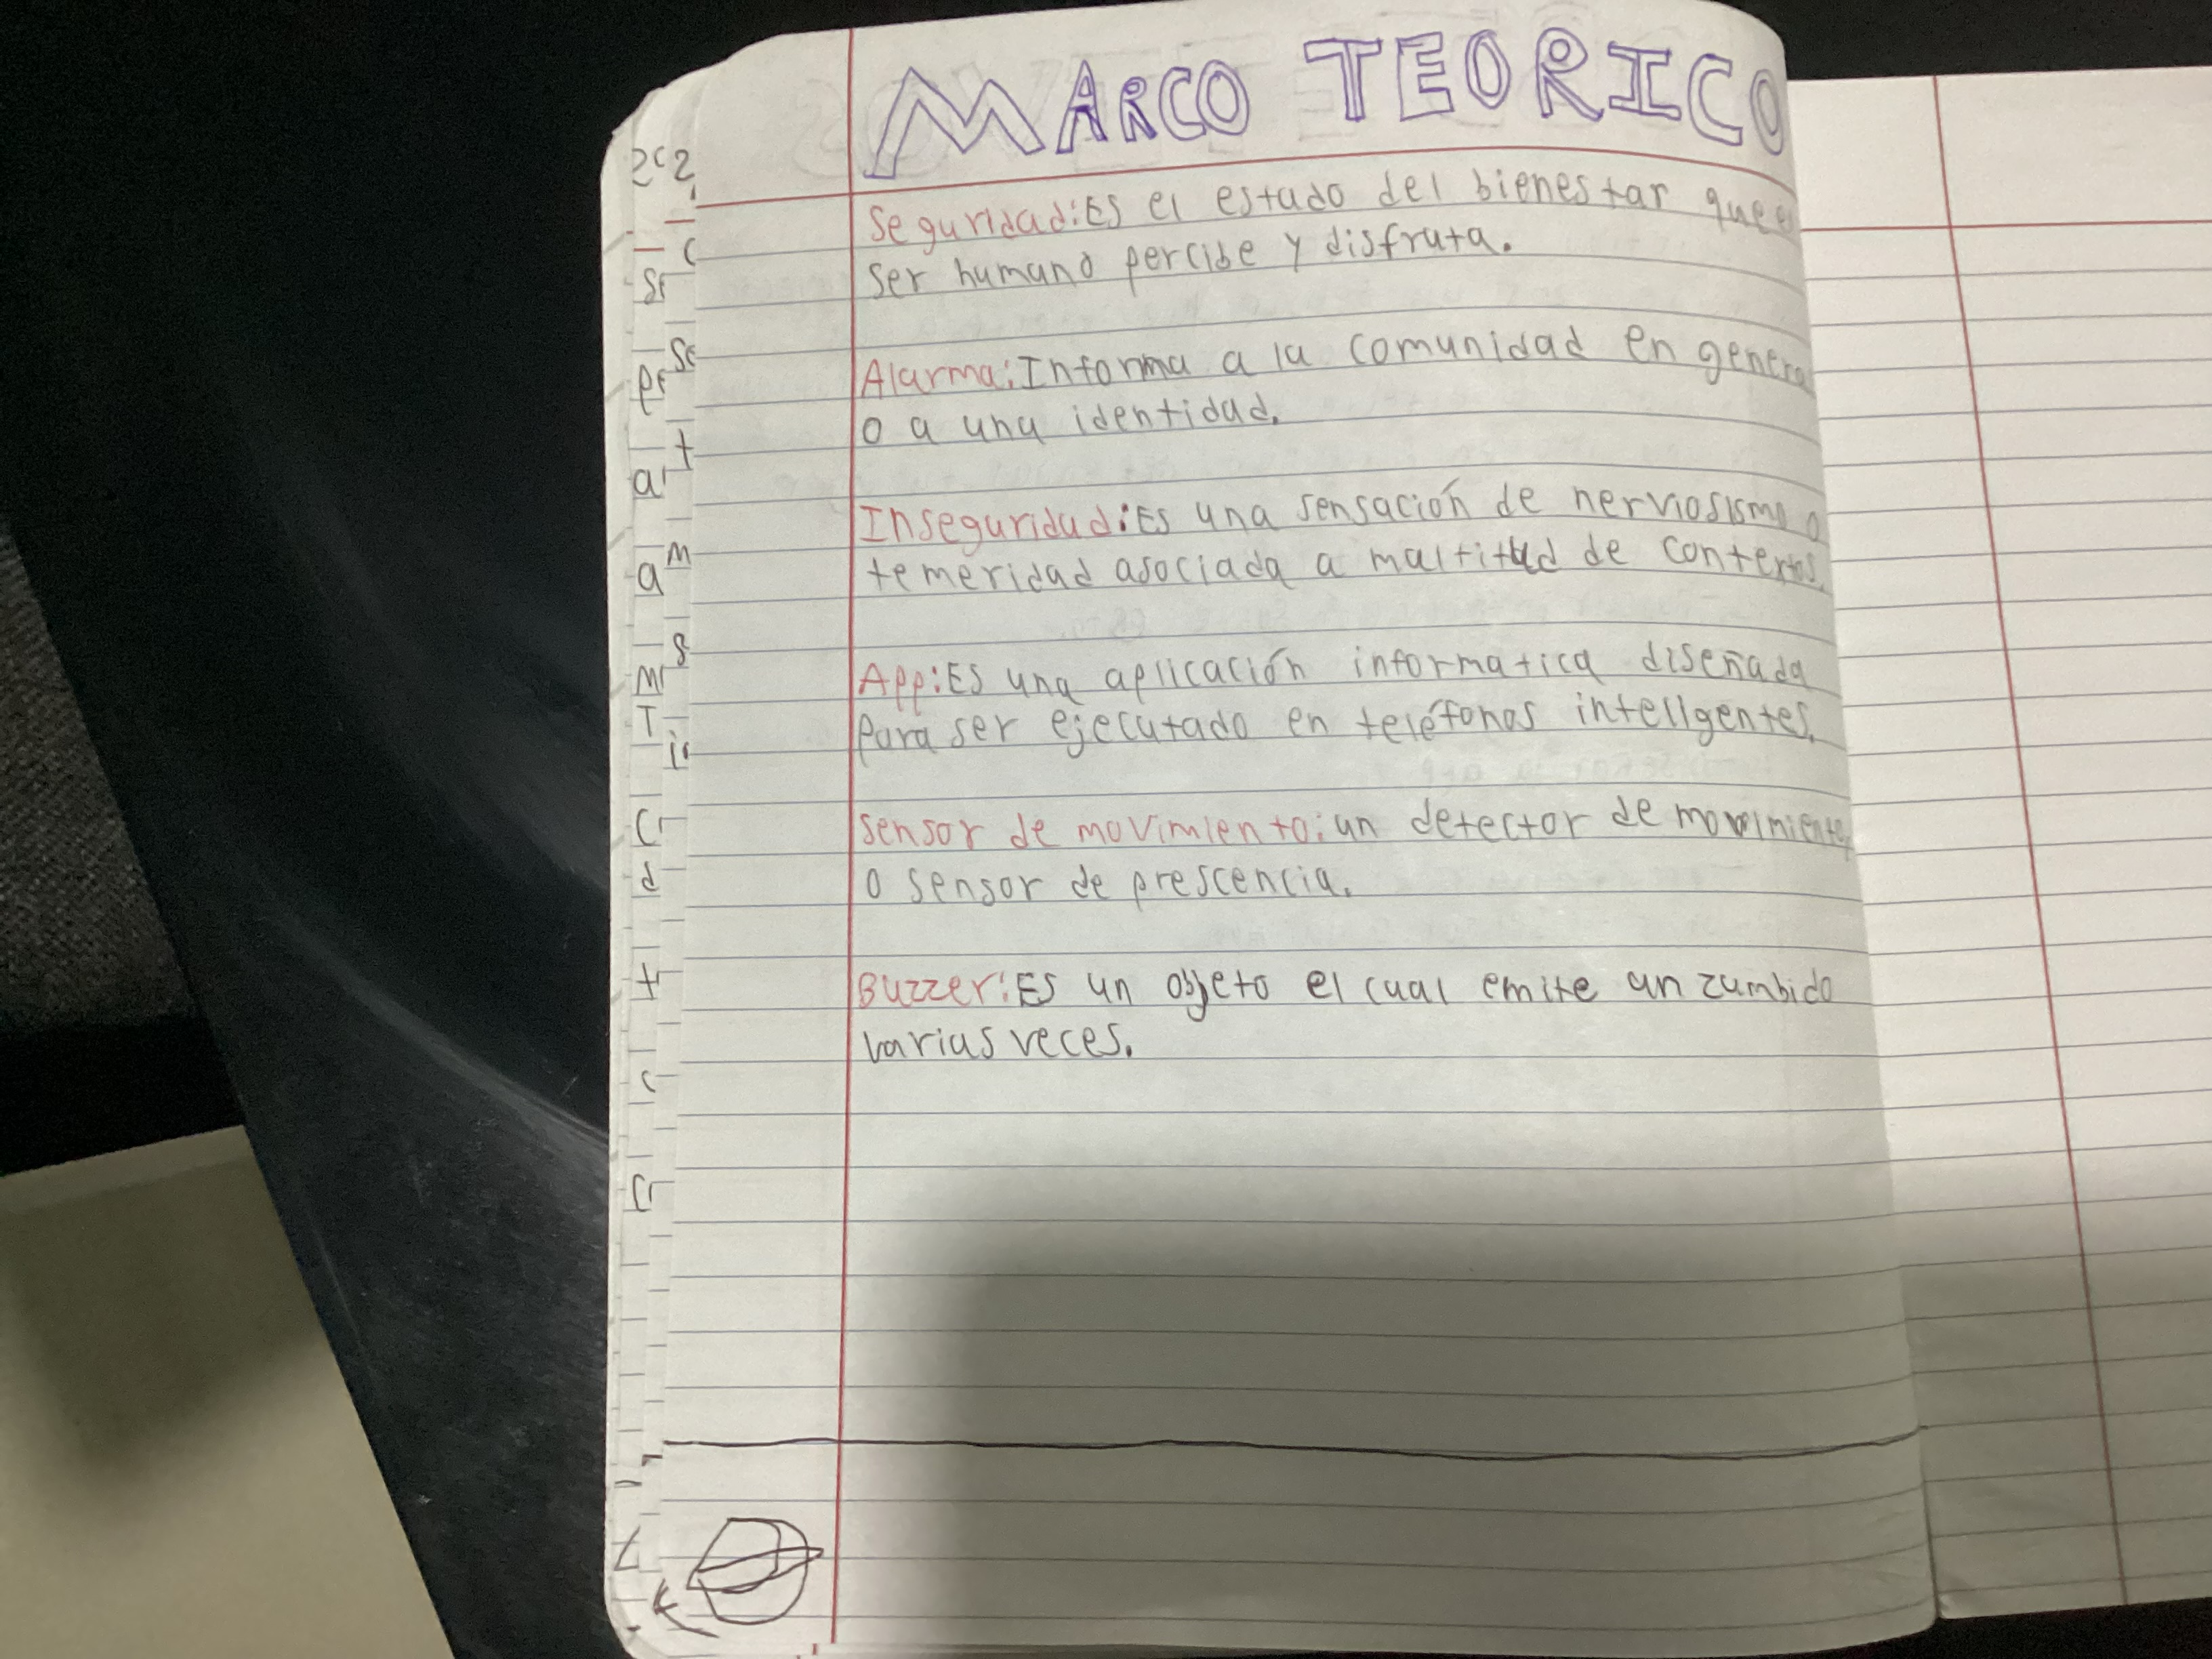 MARCO TEORICO
Seguridad: Es el estado del bienestar que el
ser humano percibe y disfruta.
Alarma: Informa a la comunidad en general
o a una identidad.
Inseguridad: Es una sensación de nerviosismo o
temeridad asociada a multitud de contextos.
App: Es una aplicación informatica diseñada
para ser ejecutado en teléfonos inteligentes.
sensor de movimiento: un detector de movimiento
o sensor de prescencia.
Buzzer: Es un objeto el cual emite un zumbido
varias veces.